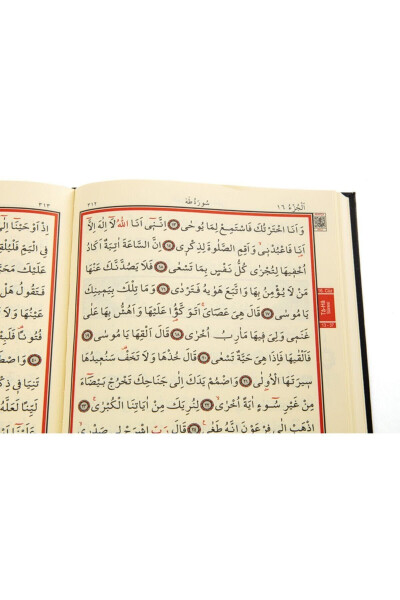 اَلْجُزْءُ ١٦
سُورَةُ طٰهٰ
٣١٢
وَاَنَا اخْتَرْتُكَ فَاسْتَمِعْ لِمَا يُوحٰى ﴿١٣﴾ اِنَّنٖٓي اَنَا اللّٰهُ لَٓا اِلٰهَ اِلَّٓا
اَنَا۬ فَاعْبُدْنٖي وَاَقِمِ الصَّلٰوةَ لِذِكْرٖي ﴿١٤﴾ اِنَّ السَّاعَةَ اٰتِيَةٌ اَكَادُ
اُخْفٖيهَا لِتُجْزٰى كُلُّ نَفْسٍ بِمَا تَسْعٰى ﴿١٥﴾ فَلَا يَصُدَّنَّكَ عَنْهَا
مَنْ لَا يُؤْمِنُ بِهَا وَاتَّبَعَ هَوٰيهُ فَتَرْدٰى ﴿١٦﴾ وَمَا تِلْكَ بِيَمٖينِكَ
يَا مُوسٰى ﴿١٧﴾ قَالَ هِيَ عَصَايَۚ اَتَوَكَّؤُ۬ا عَلَيْهَا وَاَهُشُّ بِهَا عَلٰى
غَنَمٖي وَلِيَ فٖيهَا مَاٰرِبُ اُخْرٰى ﴿١٨﴾ قَالَ اَلْقِهَا يَا مُوسٰى ﴿١٩﴾
فَاَلْقٰيهَا فَاِذَا هِيَ حَيَّةٌ تَسْعٰى ﴿٢٠﴾ قَالَ خُذْهَا وَلَا تَخَفْ۠ سَنُعٖيدُهَا
سٖيرَتَهَا الْاُو۫لٰى ﴿٢١﴾ وَاضْمُمْ يَدَكَ اِلٰى جَنَاحِكَ تَخْرُجْ بَيْضَٓاءَ
مِنْ غَيْرِ سُٓوءٍ اٰيَةً اُخْرٰىۙ ﴿٢٢﴾ لِنُرِيَكَ مِنْ اٰيَاتِنَا الْكُبْرٰىۚ ﴿٢٣﴾
اِذْهَبْ اِلٰى فِرْعَوْنَ اِنَّهُ طَغٰى۟ ﴿٢٤﴾ قَالَ رَبِّ اشْرَحْ لٖي صَدْرٖيۙ
٣١٣
اِذْ اَوْحَيْنَٓا اِلٰٓى
فِي الْيَمِّ فَلْيُلْقِهِ
عَلَيْكَ مَحَبَّ
فَتَقُولُ هَلْ
عَيْنُهَا وَلَا
فُتُونًا۠ فَلَبِثْ
وَاصْطَ
تَنِيَا فٖي ذِكْ
لَيِّنًا لَعَلَّهُ
عَلَيْنَٓا